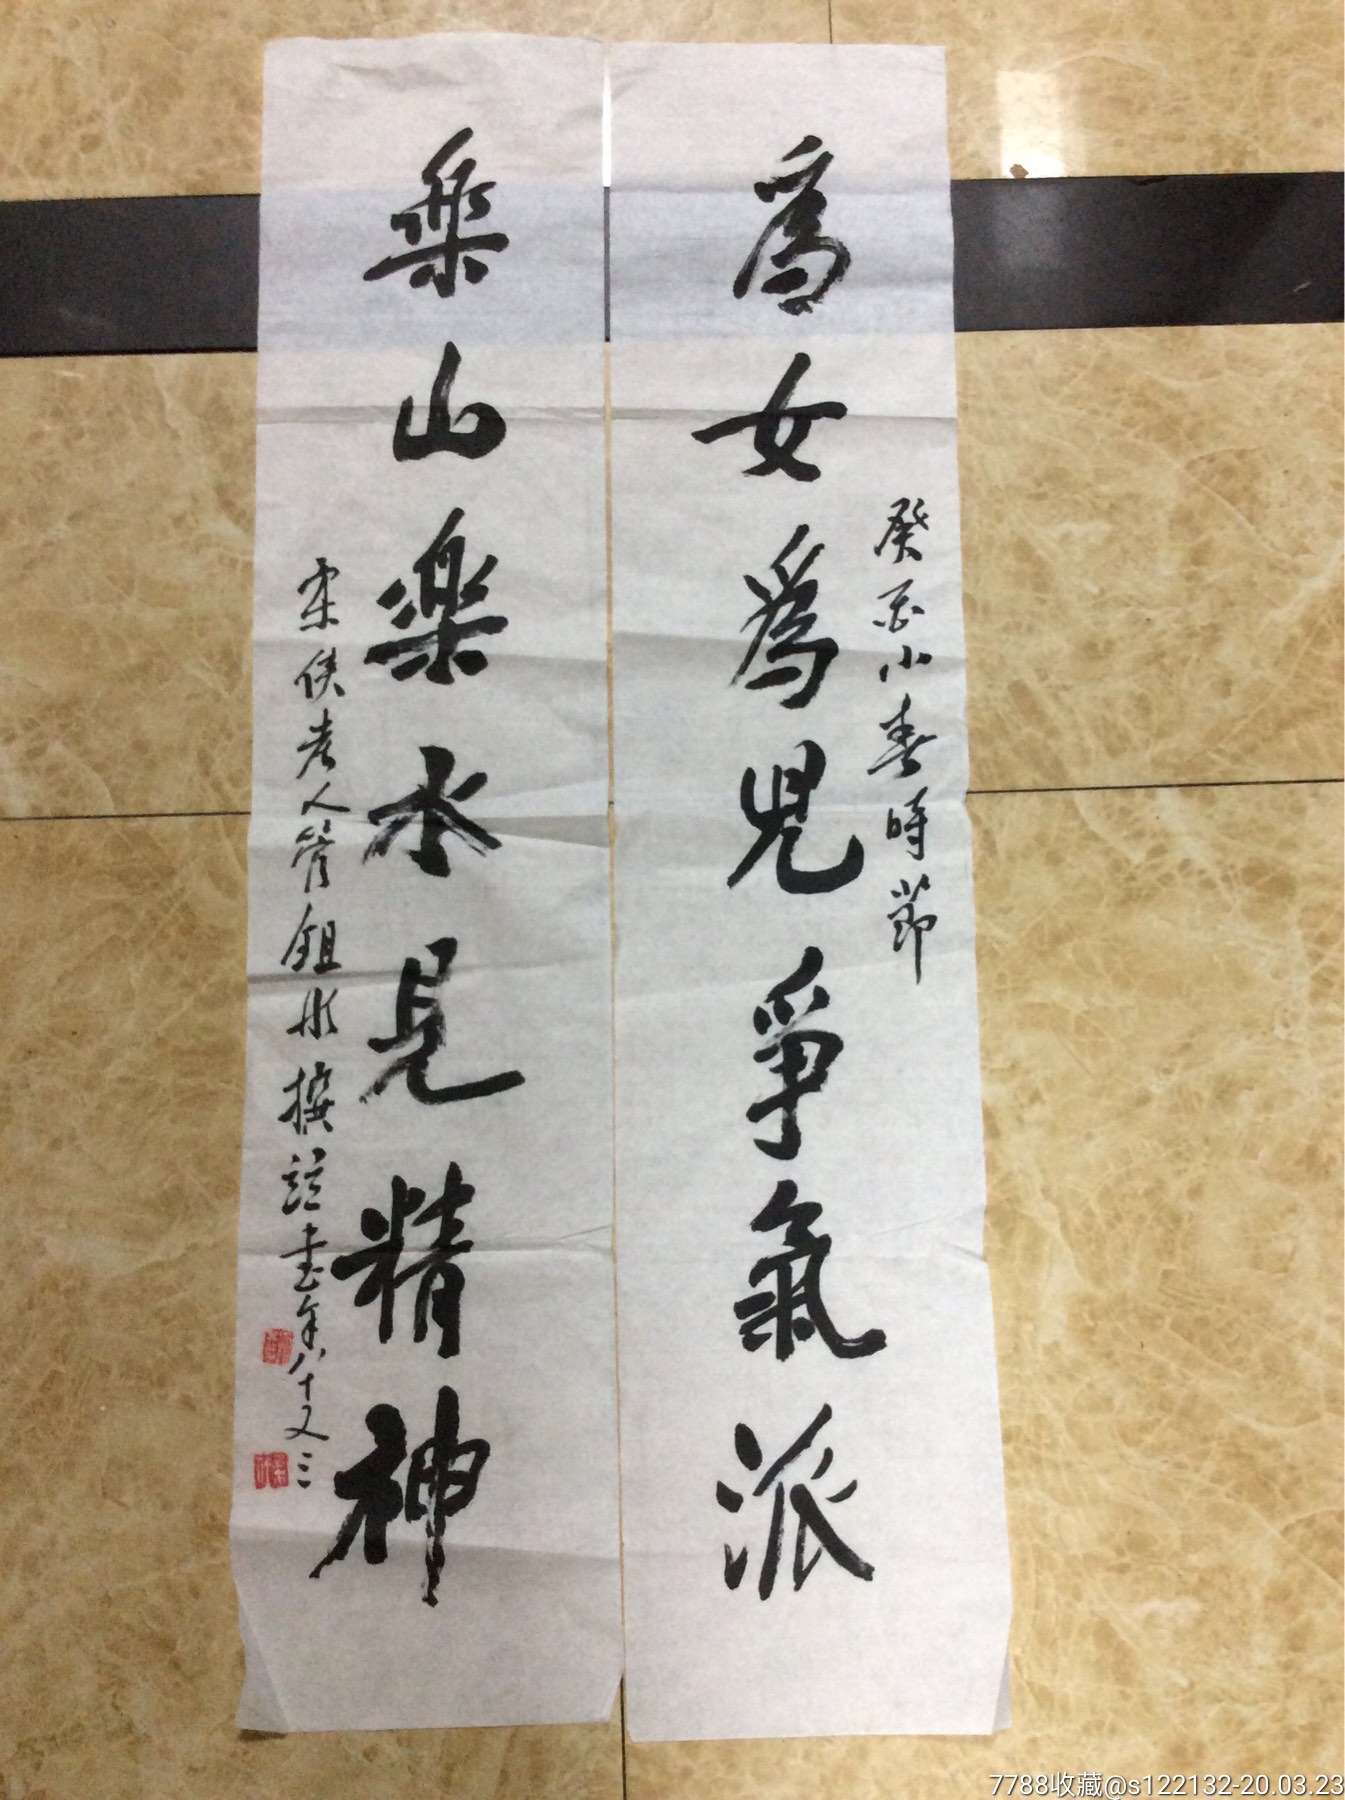 癸酉小春時節
為女為兒爭氣派
樂山樂水見精神
俠老人管鉏水撰並書年八十又三
7788收藏@s122132-20.03.23